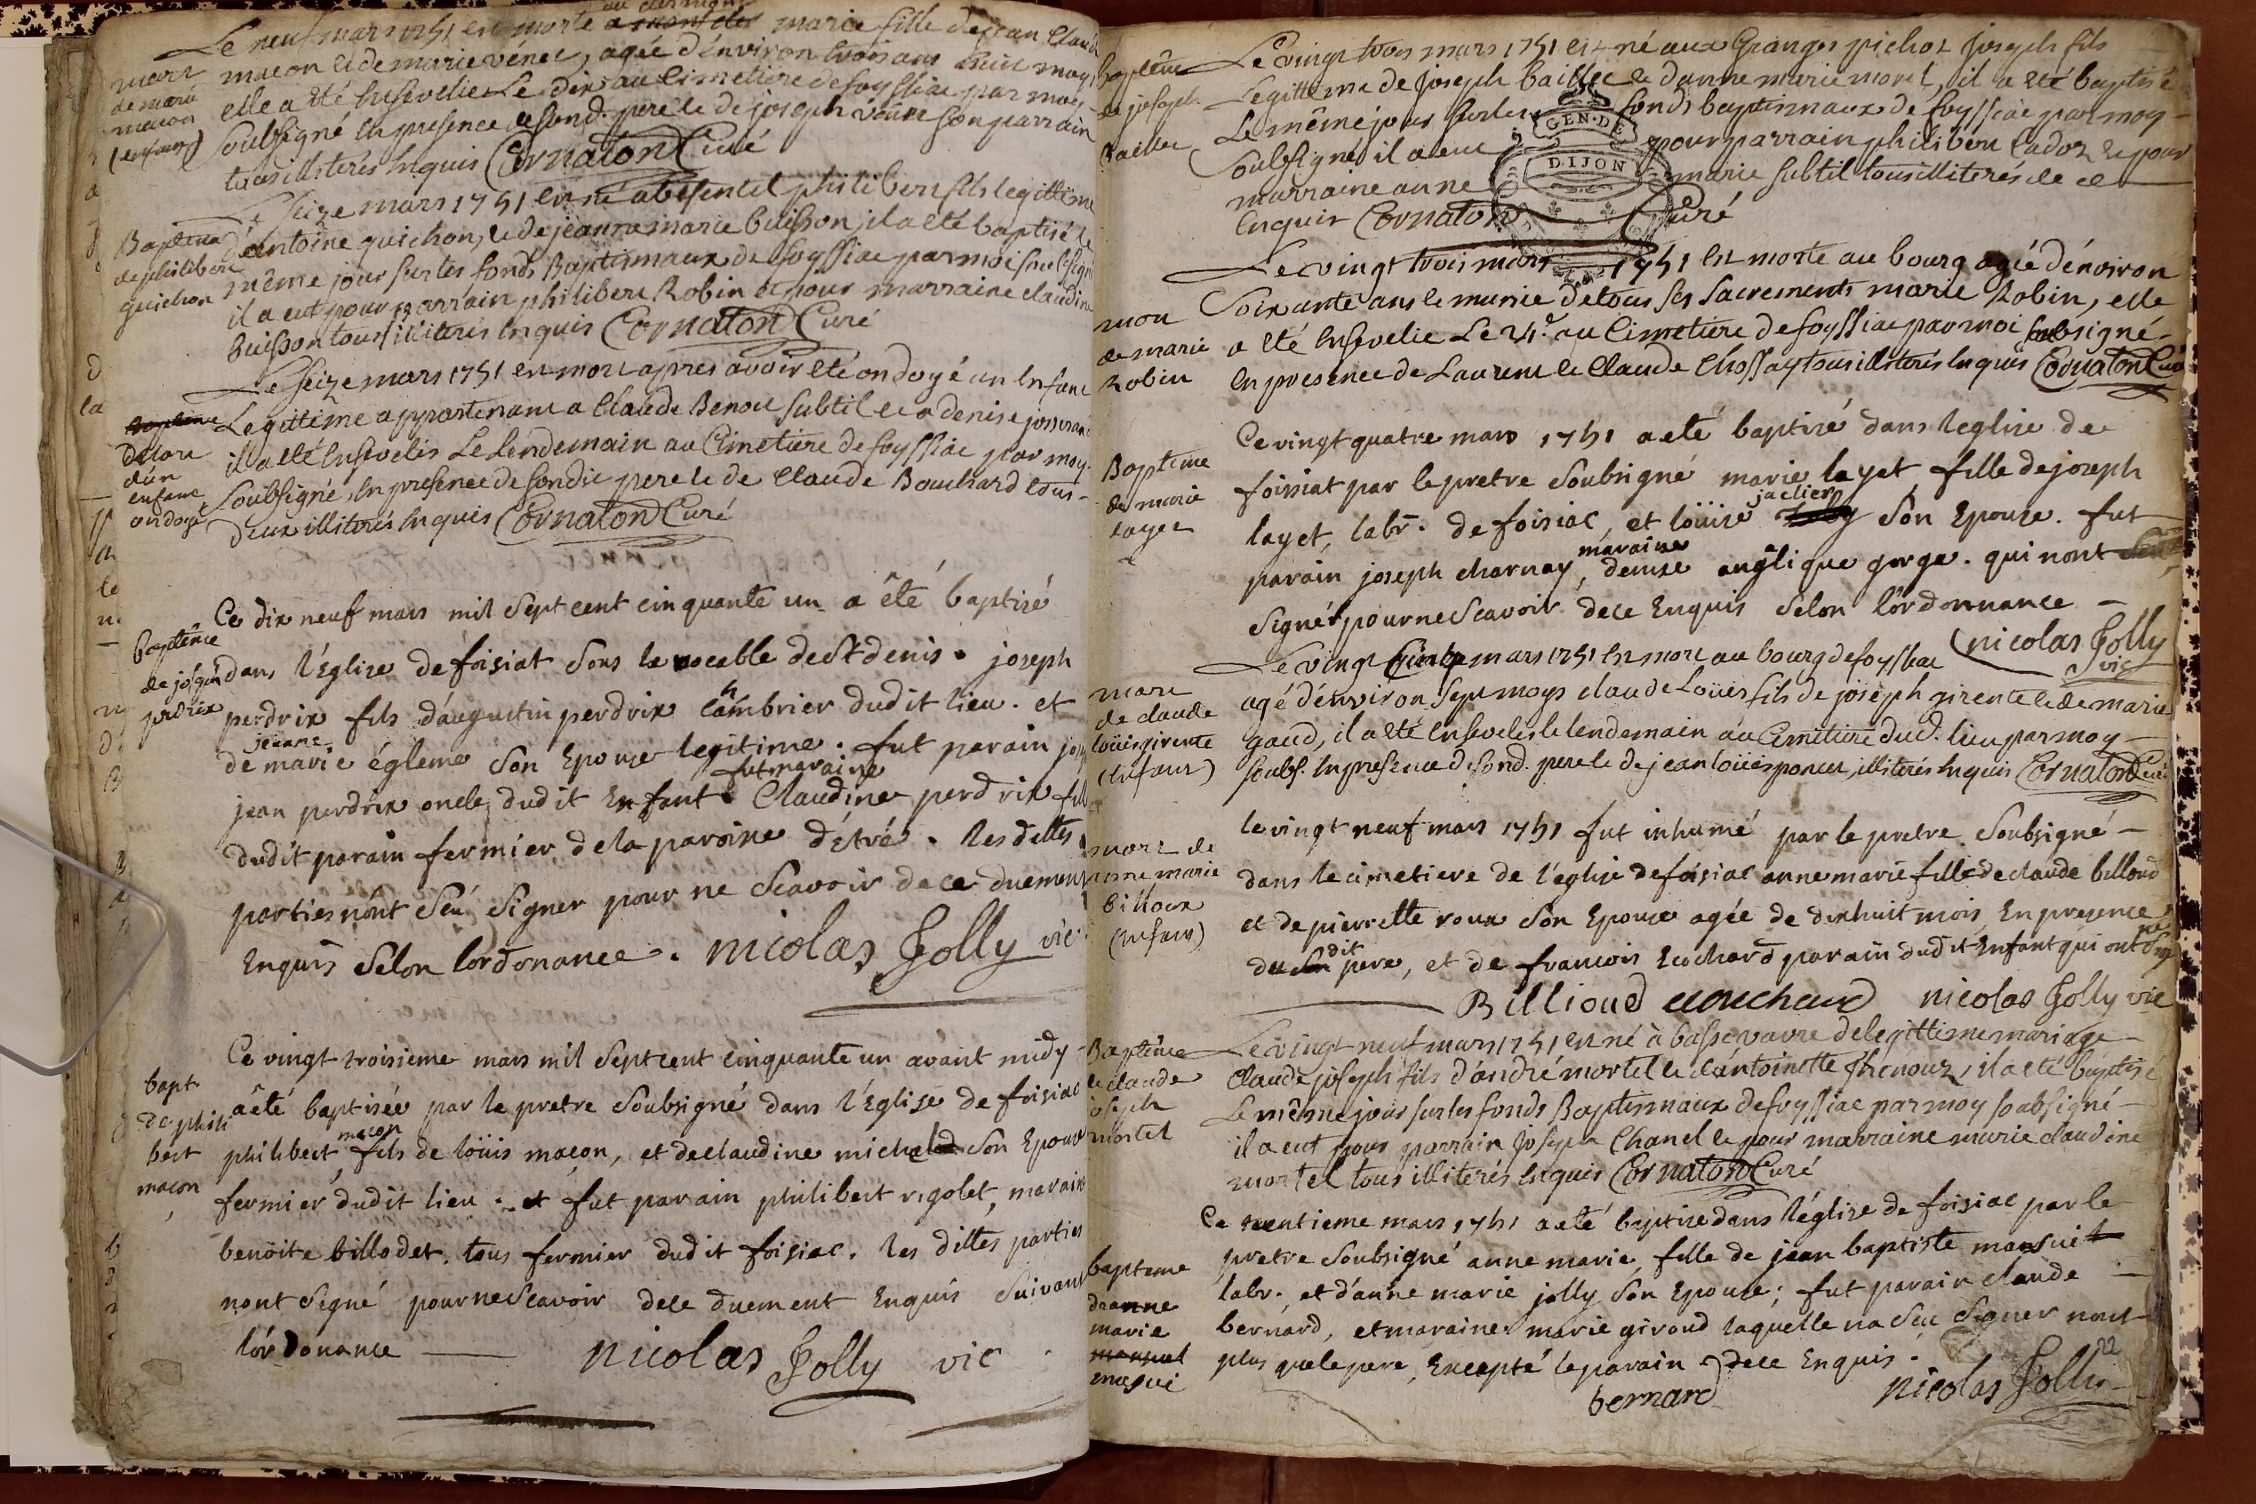 Le neuf mars 1751 est morte a marie fille de jean Claude
macon et de marie vénet, agée d'énviron trois ans huit mois
elle a été Ensevelie Le dix au Cimetiére de foyssiac par moi
Soubsigné En presence de fond. pere et de joseph vénet son parrain
tous illiterés Enquis Cornaton Curé
mort
de marie
macon
(enfant)
Le Seize mars 1751 est né philibert fils legittime
d'antoine guichon, et de jeanne marie buisson, il a été baptisé le
même jour sur les fonds Baptismaux de foyssiac par moi soubsigné
il a eut pour parrain philibert Robin et pour marraine claudine
Buisson tous illiterés Enquis Cornaton Curé
Baptême
de philibert
guichon
Le Seize mars 1751 est mort apres avoir été ondoyé un Enfant
Legittime appartenant a Claude Benoit subtil et a denise josserand
il a été Ensevelis Le Lendemain au Cimetiére de foyssiac par moy
Soubsigné, En presence de son dit pere et de Claude Bouchard tous
deux illiterés Enquis Cornaton Curé
d'un
enfant
ondoyé
Ce dix neuf mars mil sept cent cinquante un a êté baptizé
dans l'Eglize de foisiat sous le vocable de St denis. joseph
perdrix fils d'augustin perdrix chambrier dudit lieu. et
jeanne
de marie égleme son Epouze legitime. fut parain
fut maraine
jean perdrix oncle dudit Enfant Claudine perdrix
dudit parain fermier de la paroise d'Etré. Les dittes
parties n'ont seu signer pour ne scavoir de ce duement
Enquis selon lordonance. nicolas Jolly vic
baptême
de joseph
perdrix
Ce vingt troisieme mars mil sept cent cinquante un avant midy
a êté baptisée par le pretre soubsigné dans l'Eglise de foisiac
macon
philibert fils de loüis macon, et de claudine michelet son Epouse
fermier dudit lieu. et fut parain philibert rigolet, maraine
benoite billodet. tous fermier dudit foisiac. les dittes parties
nont signé pour ne scavoir de ce duement Enquis suivant
lordonance nicolas Jolly vic
bapt
de phili
bert
macon
Le vingt trois mars 1751 est né aux Granges pichot joseph fils
Legittime de joseph baillet et d'anne marie morel, il a été baptisé
Le même jour sur les fonds baptismaux de foyssiac par moy
Soubsigné il a eut pour parrain philibert Cadoz et pour
marraine anne marie subtil tous illiterés de ce
Enquis Cornaton Curé
GEN·DE
DIJON
baptême
de joseph
baillet
Le vingt trois mars 1751 est morte au bourg agée d'énviron
Soixante ans et munie de tous ses Sacrements marie Robin, elle
a été Ensevelie Le 24.e au Cimetiere de foyssiac par moi soubsigné
En presence de Laurent et Claude Chossay tous illiterés Enquis Cornaton Curé
mort
de marie
Robin
Ce vingt quatre mars 1751 a eté baptizé dans leglize de
foissiat par le pretre soubsigné marie layet, fille de joseph
jaclier
layet, labr. de foisiac, et loüise son Epouze. fut
maraine
parain joseph charnay, denise angélique gorge. qui nont
signér pour ne scavoir. de ce Enquis selon l'ordonnance
nicolas Jolly
vic
Baptême
de marie
layet
Le vingt mars 1751 est mort au bourg de foyssiac
agé d'énviron sept moys claude Loüis fils de joseph girente et de marie
gaud, il a été Ensevelis le lendemain au Cimetiére dud. lieu par moy
soubs. En presence de fond. pere et de jean loüis poncet, illiterés Enquis Cornaton Curé
mort
de claude
loüis girente
(Enfant)
le vingt neuf mars 1751 fut inhumé par le pretre soubsigné
dans le cimetiere de l'eglise de foisiac anne marie fille de claude billoud
et de pierrette roux son Epouze agée de dixhuit mois, En presence
dit
du pere, et de francois Ecochard parain dudit Enfant qui ont signé
Billioud ecouchard nicolas Jolly vic
mort de
anne marie
billoux
(Enfant)
Le vingt neuf mars 1751 est né à basse vavre de legittime mariage
Claude joseph fils d'andré mortel et d'antoinette thenouz, il a été baptisé
Le même jour sur les fonds Baptismaux de foyssiac par moy soubsigné
il a eut pour parrain joseph Chanel et pour marraine marie claudine
mortel tous illiterés Enquis Cornaton Curé
Baptême
de claude
joseph
mortel
Ce trentieme mars 1751 a eté baptize dans l'églize de foisiac par le
pretre soubsigné anne marie, fille de jean baptiste mansuit
labr. et d'anne marie jolly son Epouze; fut parain claude
bernard, et maraine marie giroud laquelle na seu signer non
plus que le pere, Excepté le parain. de ce Enquis.
bernard nicolas Jolly
baptême
d'anne
marie